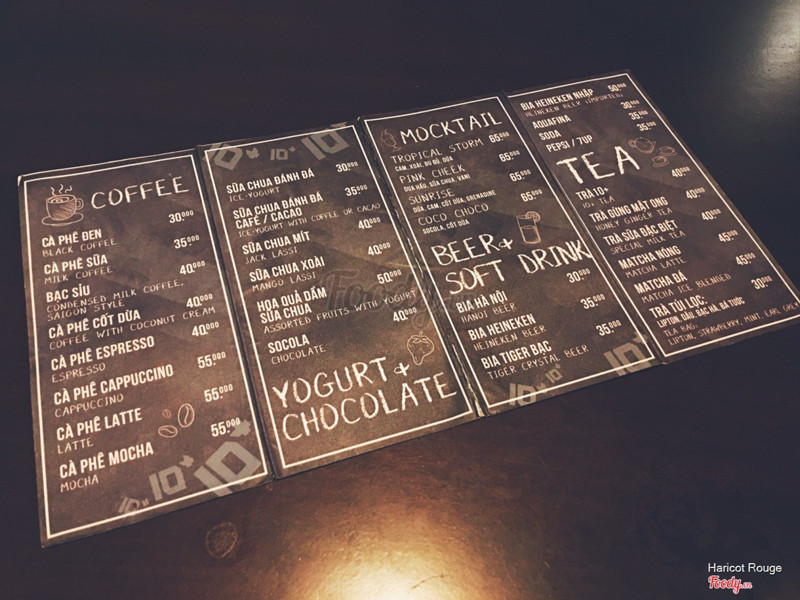 COFFEE
CÀ PHÊ ĐEN 30.000
BLACK COFFEE
CÀ PHÊ SỮA 35.000
MILK COFFEE
BẠC SỈU 40.000
CONDENSED MILK COFFEE,
SAIGON STYLE
CÀ PHÊ CỐT DỪA 40.000
COFFEE WITH COCONUT CREAM
CÀ PHÊ ESPRESSO 40.000
ESPRESSO
CÀ PHÊ CAPPUCCINO 55.000
CAPPUCCINO
CÀ PHÊ LATTE 55.000
LATTE
CÀ PHÊ MOCHA 55.000
MOCHA
10+
10+
10+
10+
10+
10+
SỮA CHUA ĐÁNH ĐÁ 30.000
ICE-YOGURT
SỮA CHUA ĐÁNH ĐÁ 35.000
CAFÉ / CACAO
ICE-YOGURT WITH COFFEE OR CACAO
SỮA CHUA MÍT 40.000
JACK LASSI
SỮA CHUA XOÀI 40.000
MANGO LASSI
HOA QUẢ DẦM 50.000
SỮA CHUA
ASSORTED FRUITS WITH YOGURT
SOCOLA 40.000
CHOCOLATE
YOGURT +
CHOCOLATE
MOCKTAIL
TROPICAL STORM 65.000
CAM, XOÀI, ĐU ĐỦ, DỨA
PINK CHEEK 65.000
DƯA HẤU, SỮA CHUA, VANI
SUNRISE 65.000
DỨA, CAM, CỐT DỪA, GRENADINE
COCO CHOCO 65.000
SOCOLA, CỐT DỪA
BEER +
SOFT DRINK
BIA HÀ NỘI 30.000
HANOI BEER
BIA HEINEKEN 35.000
HEINEKEN BEER
BIA TIGER BẠC 35.000
TIGER CRYSTAL BEER
10+
10+
10+
BIA HEINEKEN NHẬP 50.000
HEINEKEN BEER (IMPORTED)
AQUAFINA 30.000
SODA 35.000
PEPSI / 7UP 35.000
TEA
TRÀ 10+ 40.000
10+ TEA
TRÀ GỪNG MẬT ONG 40.000
HONEY GINGER TEA
TRÀ SỮA ĐẶC BIỆT 40.000
SPECIAL MILK TEA
MATCHA NÓNG 45.000
MATCHA LATTE
MATCHA ĐÁ 45.000
MATCHA ICE BLENDED
TRÀ TÚI LỌC: 30.000
LIPTON, DÂU, BẠC HÀ, BÁ TƯỚC
TEA BAG:
LIPTON, STRAWBERRY, MINT, EARL GREY
Foody
Haricot Rouge
Foody.vn